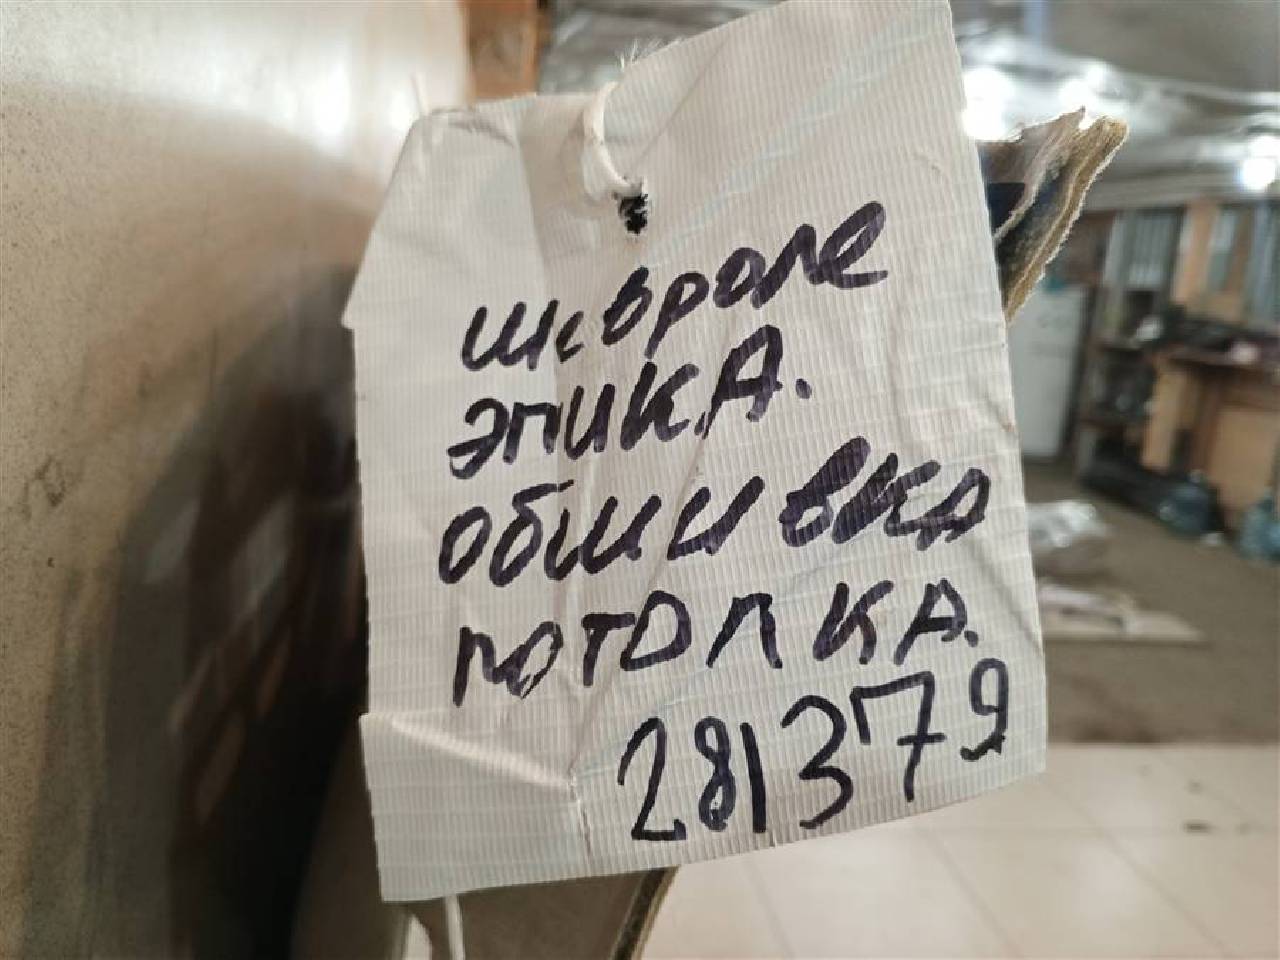 Шевроле
Эпика.
обшивка
потолка.
281379